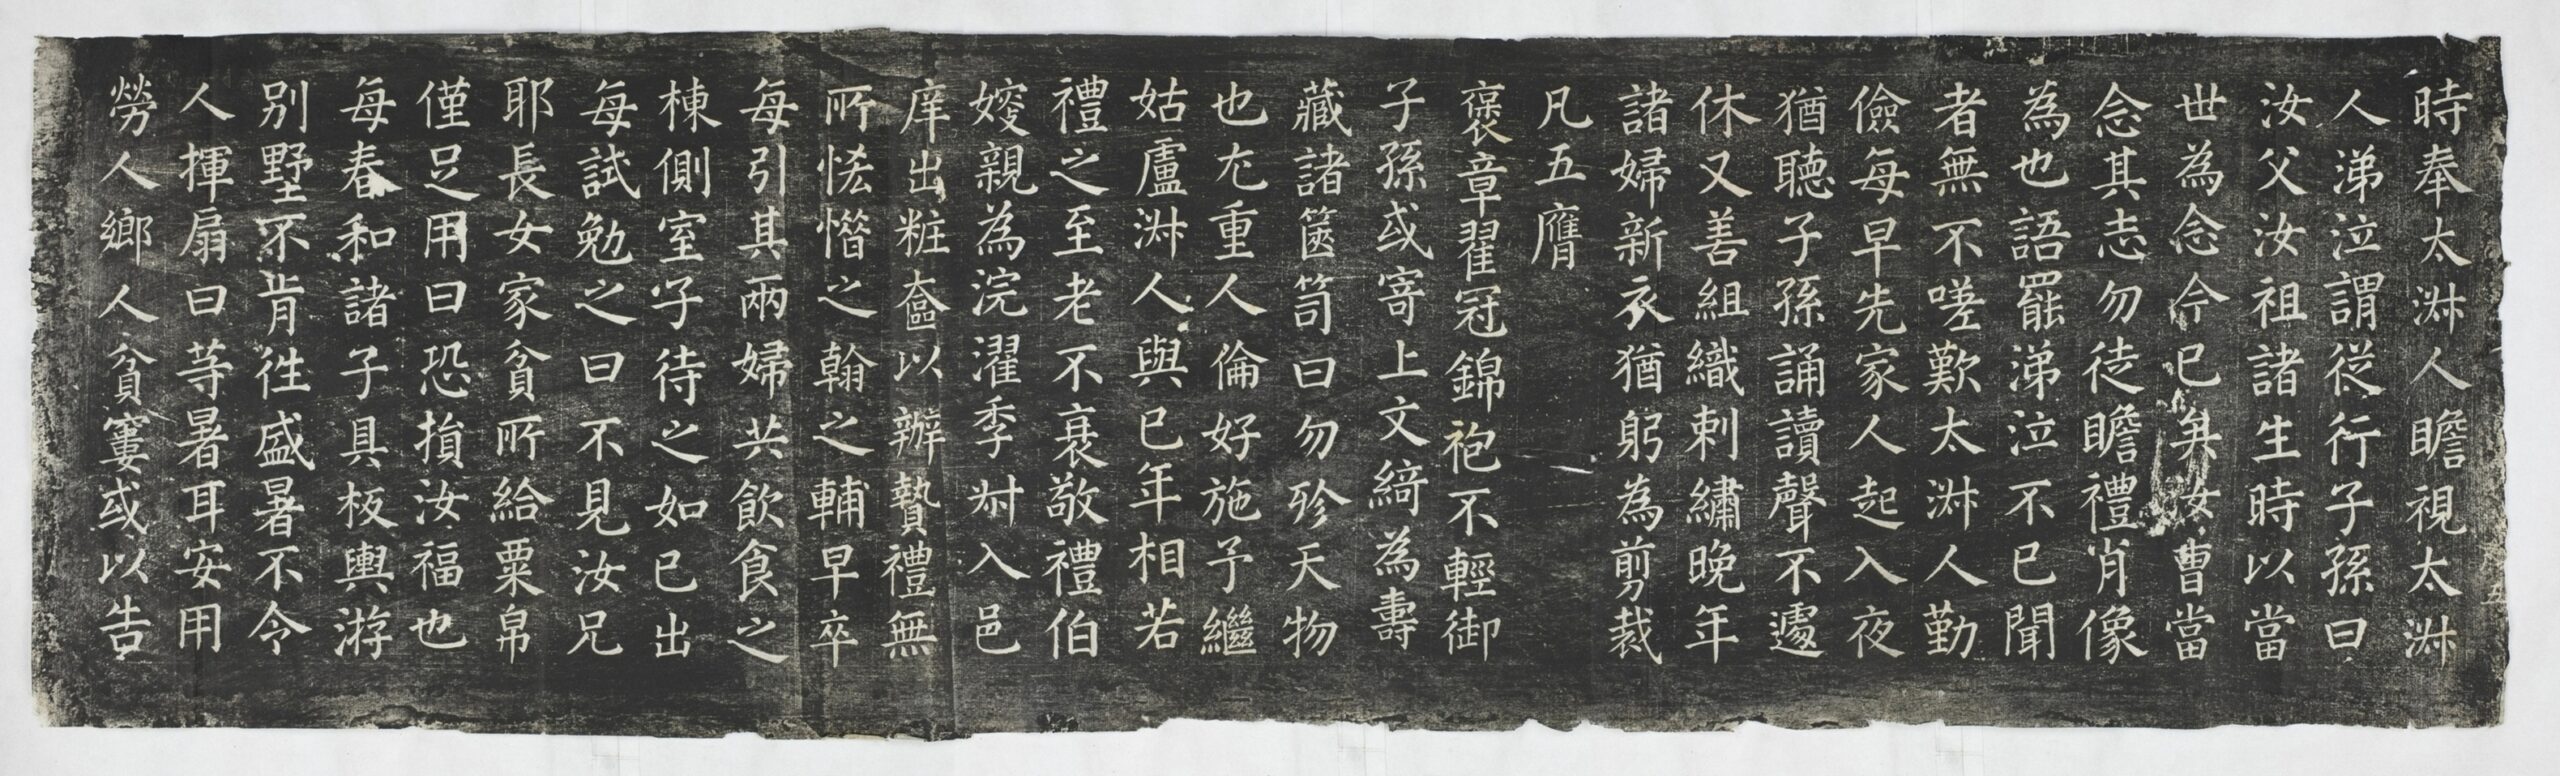 時奉太淑人瞻視太淑
人涕泣謂從行子孫曰
汝父汝祖諸生時以當
世為念今已矣汝曹當
念其志勿徒瞻禮肖像
為也語罷涕泣不已聞
者無不嗟歎太淑人勤
儉每早先家人起入夜
猶聽子孫誦讀聲不遽
休又善組織刺繡晚年
諸婦新衣猶躬為剪裁
凡五膺
褒章翟冠錦袍不輕御
子孫或寄上文綺為壽
藏諸篋笥曰勿殄天物
也尤重人倫好施予繼
姑盧淑人與已年相若
禮之至老不衰敬禮伯
嫂親為浣濯季叔入邑
庠出粧奩以辦贄禮無
所恡惜之翰之輔早卒
每引其兩婦共飲食之
棟側室子待之如已出
每試勉之曰不見汝兄
耶長女家貧所給粟帛
僅足用曰恐損汝福也
每春和諸子具板輿游
别墅不肯往盛暑不令
人揮扇曰等暑耳安用
勞人鄉人貧窶或以告